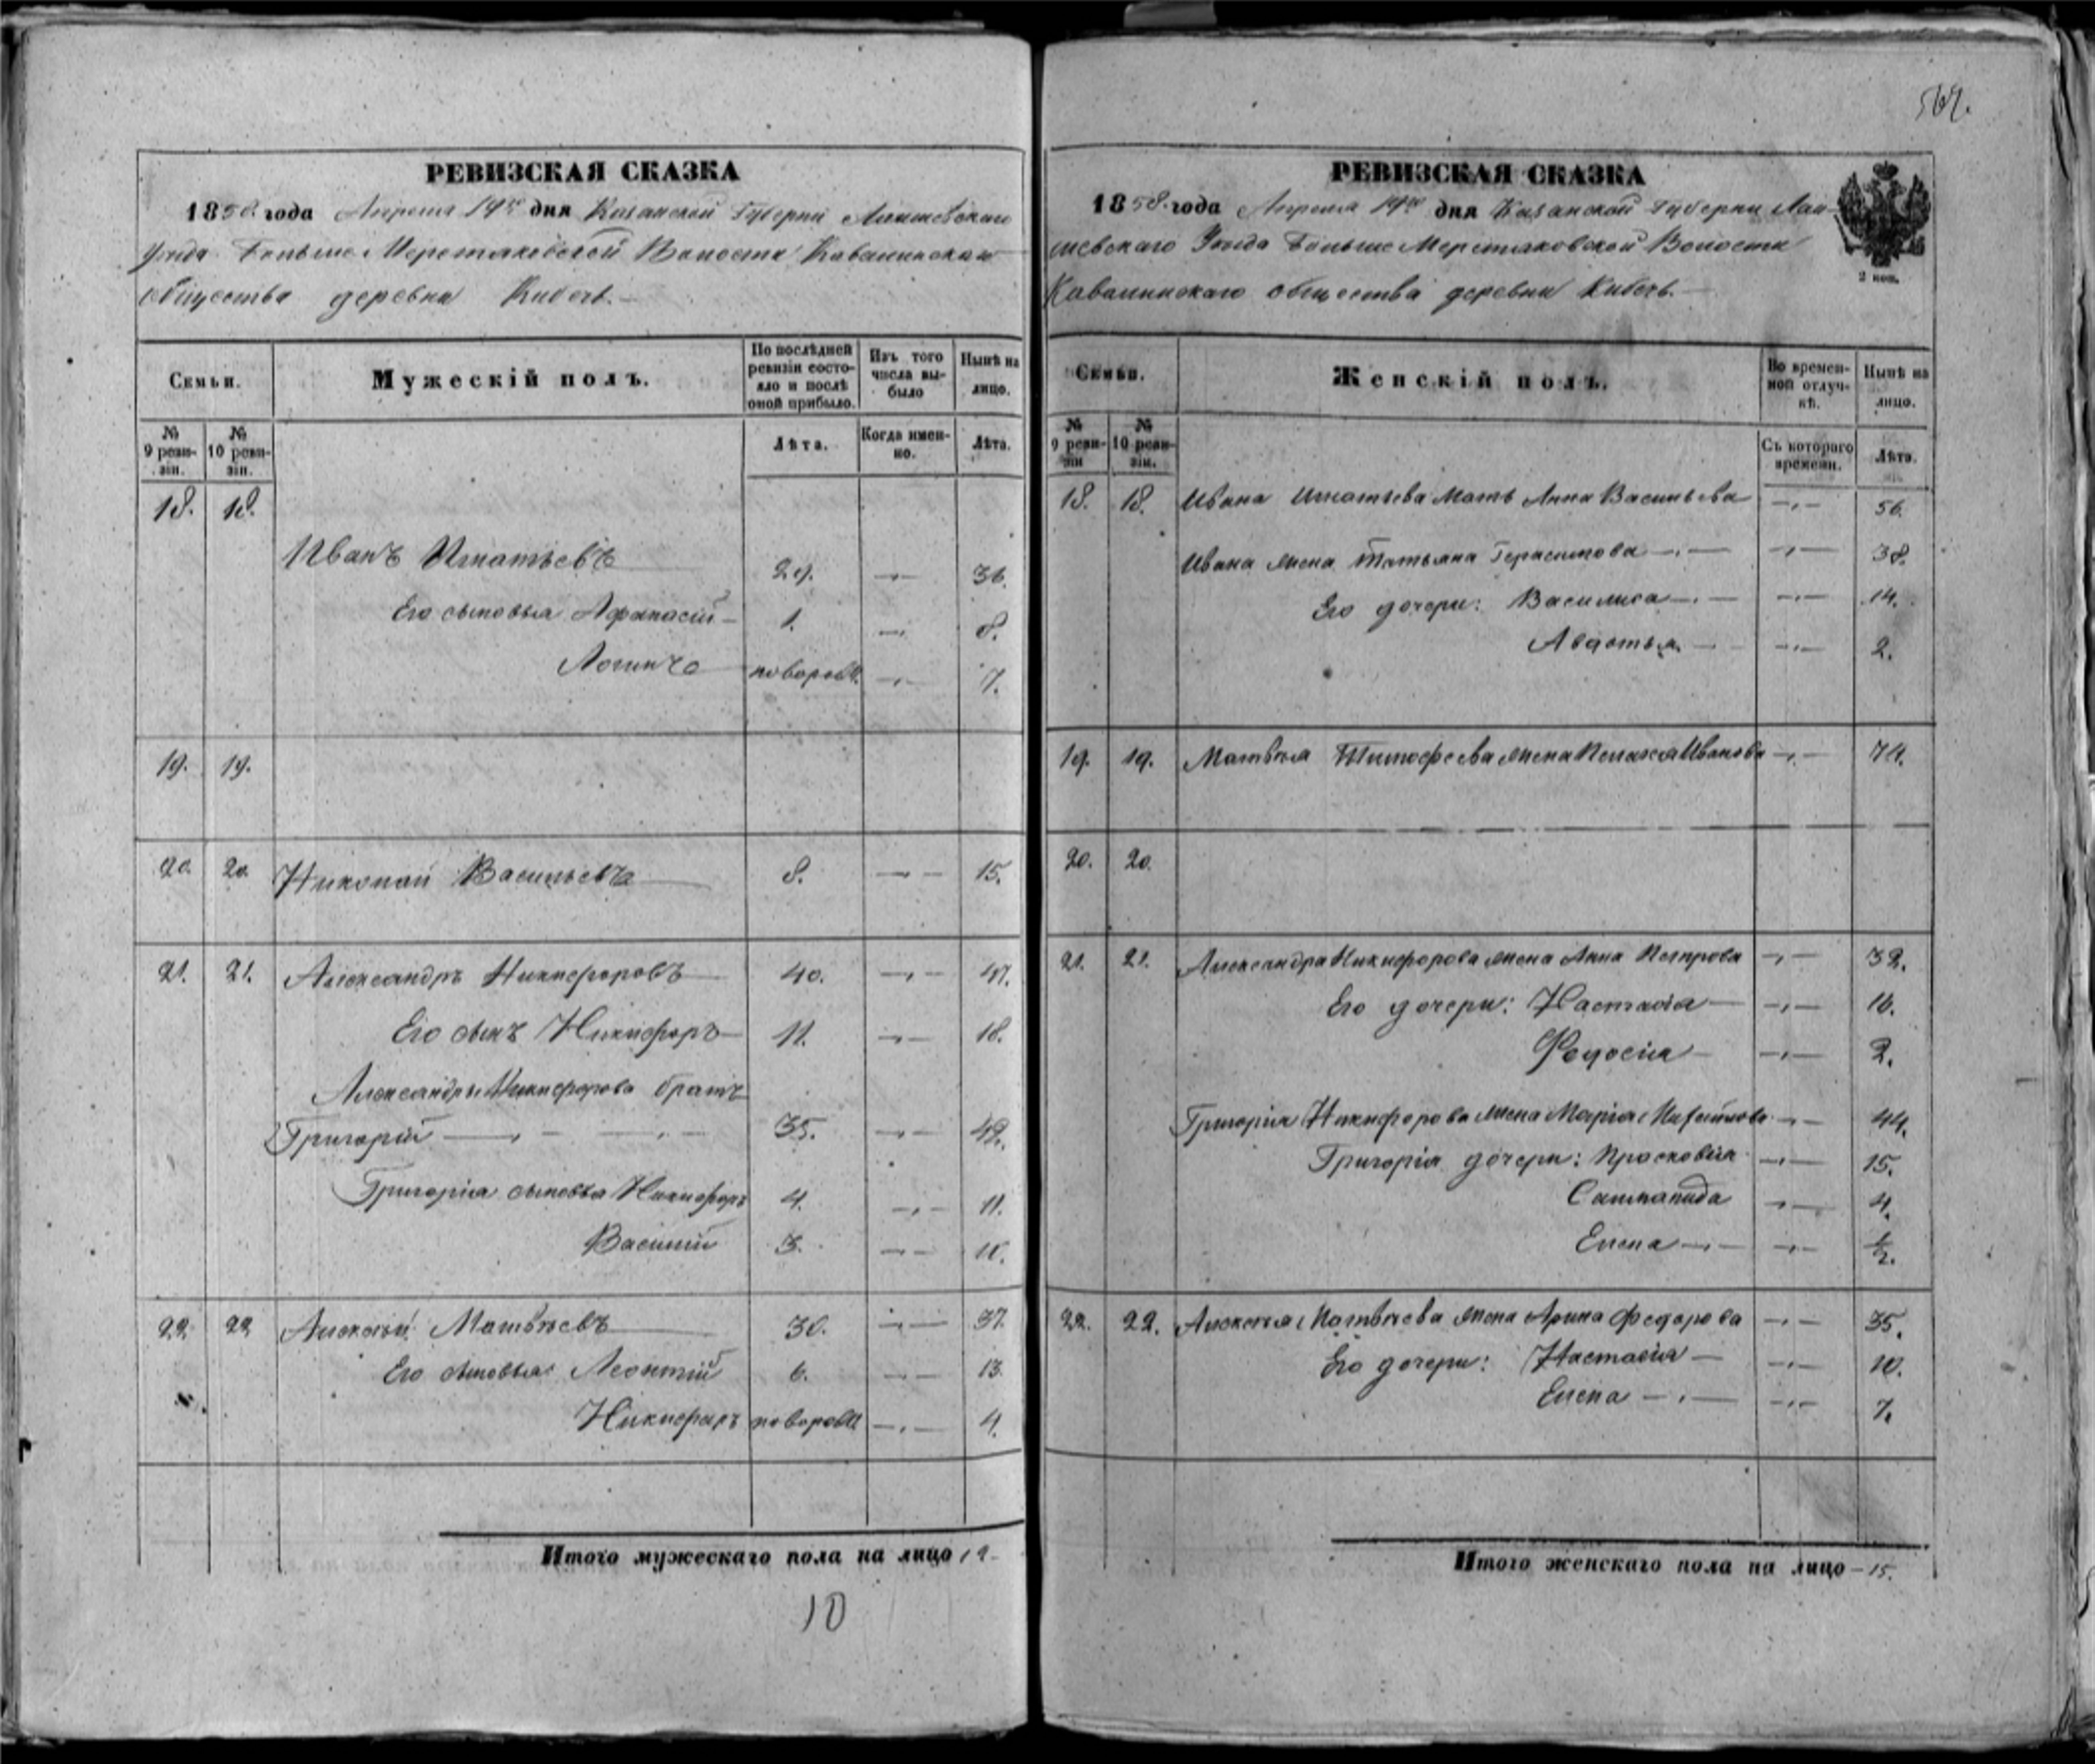 567.
РЕВИЗСКАЯ СКАЗКА
1858 года Апреля 19го дня Казанской Губерніи Лаишевскаго
Уѣзда Больше Меретяковской Волости Ковалинскаго
общества деревни Кибечь.
Семьи.
Мужескій полъ.
По послѣдней ревизіи состояло и послѣ оной прибыло.
Изъ того числа выбыло
Нынѣ на лицо.
№ 9 ревизіи.
№ 10 ревизіи.
Лѣта.
Когда именно.
Лѣта.
18. 18.
Иванъ Игнатьевъ 29. —„— 36.
Его сыновья Афанасій 1. —„— 8.
Логинъ новорожд. —„— 7.
19. 19.
20. 20. Николай Васильевъ 8. —„— 15.
21. 21. Александръ Никифоровъ 40. —„— 47.
Его сынъ Никифоръ 11. —„— 18.
Александры Никифорова братъ
Григорій —„— —„— 35. —„— 42.
Григорія сыновья Никифоръ 4. —„— 11.
Василій 3. —„— 10.
22. 22. Алексѣй Матвѣевъ 30. —„— 37.
Его сыновья Леонтій 6. —„— 13.
Никифоръ новорожд. —„— 4.
Итого мужескаго пола на лицо 12
10
РЕВИЗСКАЯ СКАЗКА
1858 года Апреля 19го дня Казанской Губерніи Лаи-
шевскаго Уѣзда Больше Меретяковской Волости
Ковалинскаго общества деревни Кибечь.
2 коп.
Семьи.
Женскій полъ.
Во временной отлучкѣ.
Нынѣ на лицо.
№ 9 ревизіи
№ 10 ревизіи.
Съ котораго времени.
Лѣта.
18. 18. Ивана Игнатьева Мать Анна Васильева —„— 56.
Ивана жена Татьяна Герасимова —„— —„— 38.
Его дочери: Василиса —„— —„— 14.
Авдотья —„— 2.
19. 19. Матвѣя Тимофеева жена Пелагея Иванова —„— 74.
20. 20.
21. 21. Александра Никифорова жена Анна Петрова —„— 32.
Его дочери: Настасія —„— 16.
Федосія —„— 2.
Григорія Никифорова жена Марія Михайлова —„— 44.
Григорія дочери: Прасковія —„— 15.
Сиппанида —„— 4.
Елена —„— —„— 1/2.
22. 22. Алексѣя Матвѣева жена Арина Федорова —„— 35.
Его дочери: Настасія —„— 10.
Елена —„— —„— 7.
Итого женскаго пола на лицо — 15.